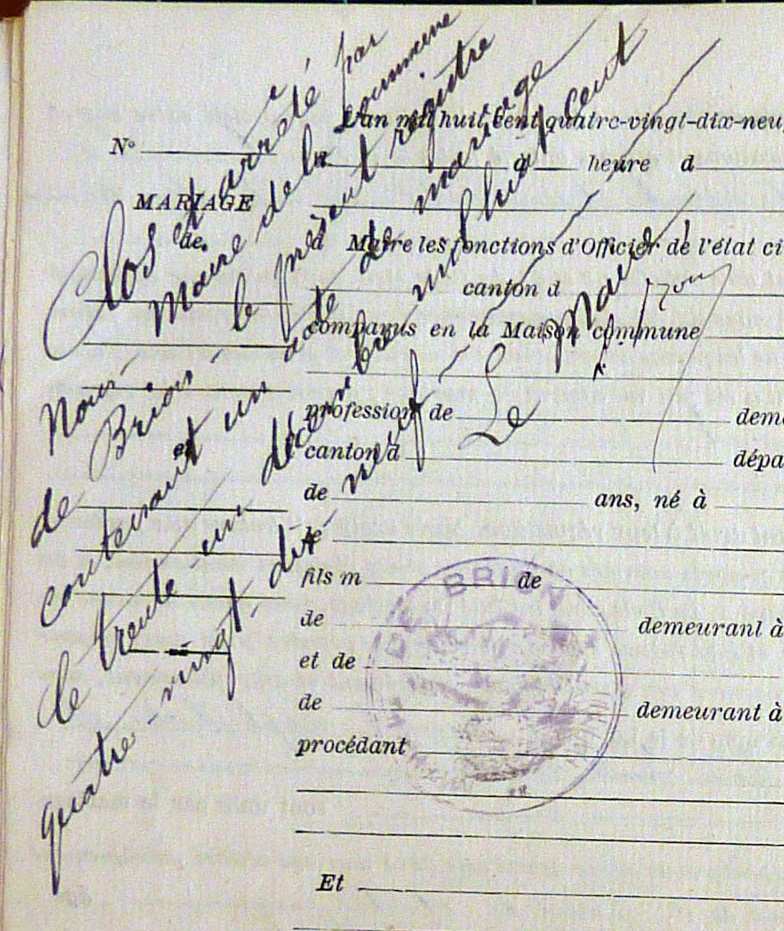 Clos et arrêté par
Nous Maire de la Commune
de Brion le présent registre
contenant un acte de mariage
le trente un décembre mil huit cent
quatre-vingt-dix-neuf
Le Maire
L'an mil huit cent quatre-vingt-dix-neu
N°
à heure d
MARIAGE
de
d Maire les fonctions d'Officier de l'état ci
canton d
comparus en la Maison commune
profession de deme
et
canton d dépa
de ans, né à
le
fils m de
de demeurant à
et de
de demeurant à
procédant
Et
DE BRION